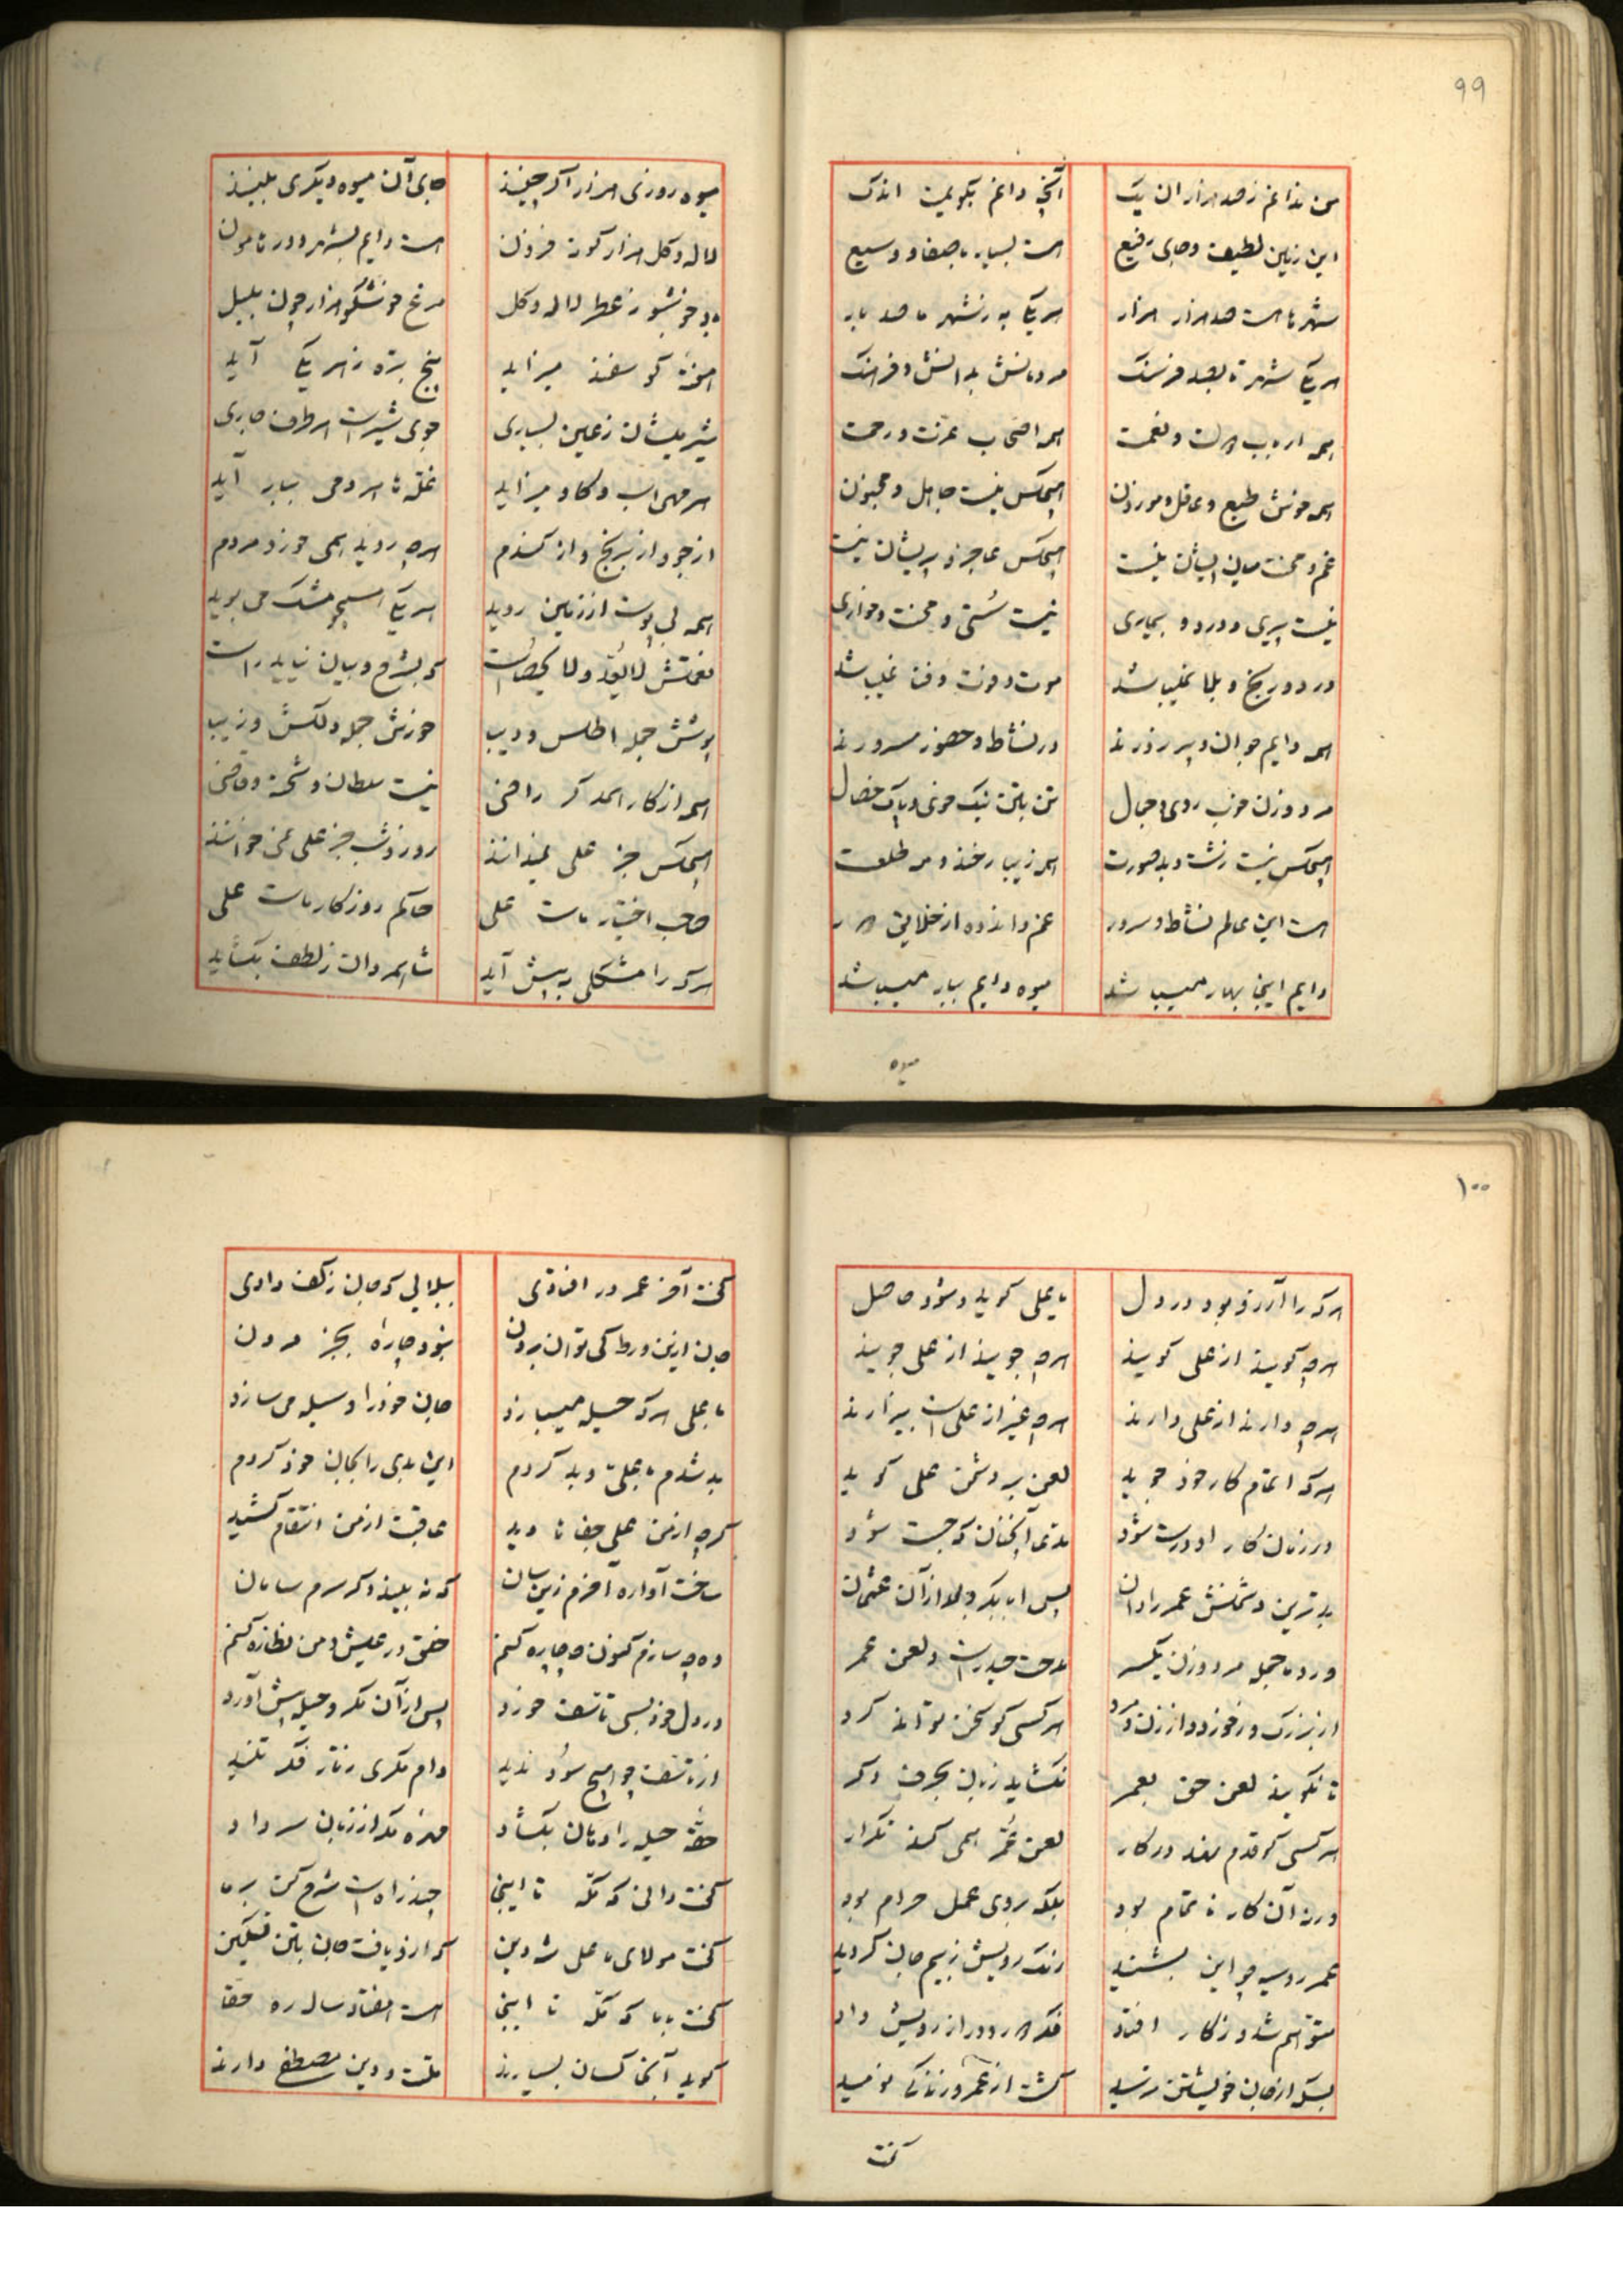 ۹۹
من ندانم ز صد هزاران یک آنچه دانم بگویمت اندک
این زمین لطیف و جای رفیع هست بسیار با صفا و وسیع
شهرها هست صد هزار هزار هر یکی به ز شهر ما صد بار
هر یکی شهر تا بصد فرسنگ مردمانش بدانش و فرهنگ
همه ارباب دولت و نعمت همه اصحاب عزت و رحمت
همه خوش طبع و عاقل و موزون هیچکس نیست جاهل و مجنون
غم و محنت میان ایشان نیست هیچکس عاجز و پریشان نیست
نیست پیری و درد و بیماری نیست سستی و محنت و خواری
درد و رنج و بلا نمیباشد موت و فوت و فنا نمیباشد
همه دایم جوان و پر زورند در نشاط و حضور مسرورند
مرد و زن خوب روی و جمال تن بتن نیک خوی و پاک خصال
هیچکس نیست زشت و بد صورت همه زیبا رخند و مه طلعت
هست این عالم نشاط و سرور غم و اندوه از خلایق دور
دایم اینجا بهار میباشد میوه دایم ببار میباشد
میوه
میوه روزی هزار اگر چینند جای آن میوه دیگری بینند
لاله و گل هزار گونه فزون هست دایم بشهر و در هامون
باد خوشبو ز عطر لاله و گل مرغ خوشگو هزار چون بلبل
هفته گوسفند میزاید پنج بره ز هر یکی آید
شیر میشان ز عین بسیاری جوی شیر است هر طرف جاری
هر مهی اسب و گاو میزاید غله تا هر دومی ببار آید
از جو و از برنج و از گندم هر چه روید همی خورد مردم
همه بی پوست از زمین روید هر یکی همچو مشک می بوید
نعمتش لا یعد و لا یحصاست که بشرح و بیان نیاید راست
پوشش جمله اطلس و دیبا خورش جمله دلکش و زیبا
همه از کار همدگر راضی نیست سلطان و شحنه و قاضی
هیچکس جز علی نمیدانند روز و شب جز علی نمیخوانند
صاحب اختیار ماست علی حاکم روزگار ماست علی
هر که را مشکلی به پیش آید شاه مردان ز لطف بگشاید
۱۰۰
هر که را آرزو بود در دل یا علی گوید و شود حاصل
هر چه گویند از علی گویند هر چه جویند از علی جویند
هر چه دارند از علی دارند هر چه غیر از علی است بیزارند
هر که اتمام کار خود جوید لعن بر دشمن علی گوید
در زمان کار او درست شود مدعا آنچنان که جست شود
بدترین دشمنش عمر را دان پس ابابکر و بعد از آن عثمان
ورد ما جمله مرد و زن یکسر مدحت حیدر است و لعن عمر
از بزرگ و ز خورد و از زن و مرد هر کسی کو سخن تواند کرد
تا نگویند لعن حق بعمر نگشاید زبان بحرف دگر
هر کسی کو قدم نهد در کار لعن عمر همی کند تکرار
ورنه آن کار ناتمام بود بلکه بروی عمل حرام بود
عمر روسیه چو این بشنید رنگ رویش ز بیم جان گردید
متوهم شد و ز کار افتاد فکر دور از رویش داد
بسکه از جان خویشتن ترسید گشت از عمر و زندگی نومید
گفت
گفت آخر عمر در افتادی ببلایی که جان ز کف دادی
جان ازین ورطه کی توان بردن نبود چاره بجز مردن
با علی هر که حیله میسازد جان خود را وسیله می سازد
بد شدم با علی و بد کردم این بدی را بجان خود کردم
گر چه از من علی جفاها دید عاقبت از من انتقام کشید
ساخت آواره آخرم زین سان که نه بیند دگر سرم سامان
وه چه سازم کنون چه چاره کنم خلق در عیش و من نظاره کنم
در دل خود بسی تاسف خورد پس از آن مکر و حیله پیش آورد
از تاسف چو هیچ سود ندید دام مکری ز تار فکر تنید
حقه حیله را دهان بگشاد مهره مکر از زبان سر داد
گفت دانی که مکه تا اینجا چند راه است شرح کن بر ما
گفت مولای ما علی شه دین که ازو یافت جان بتن تسکین
گفت بابا که مکه تا اینجا هست هفتاد سال ره حقا
گوید آنجا کسان بسیارند ملت و دین مصطفی دارند